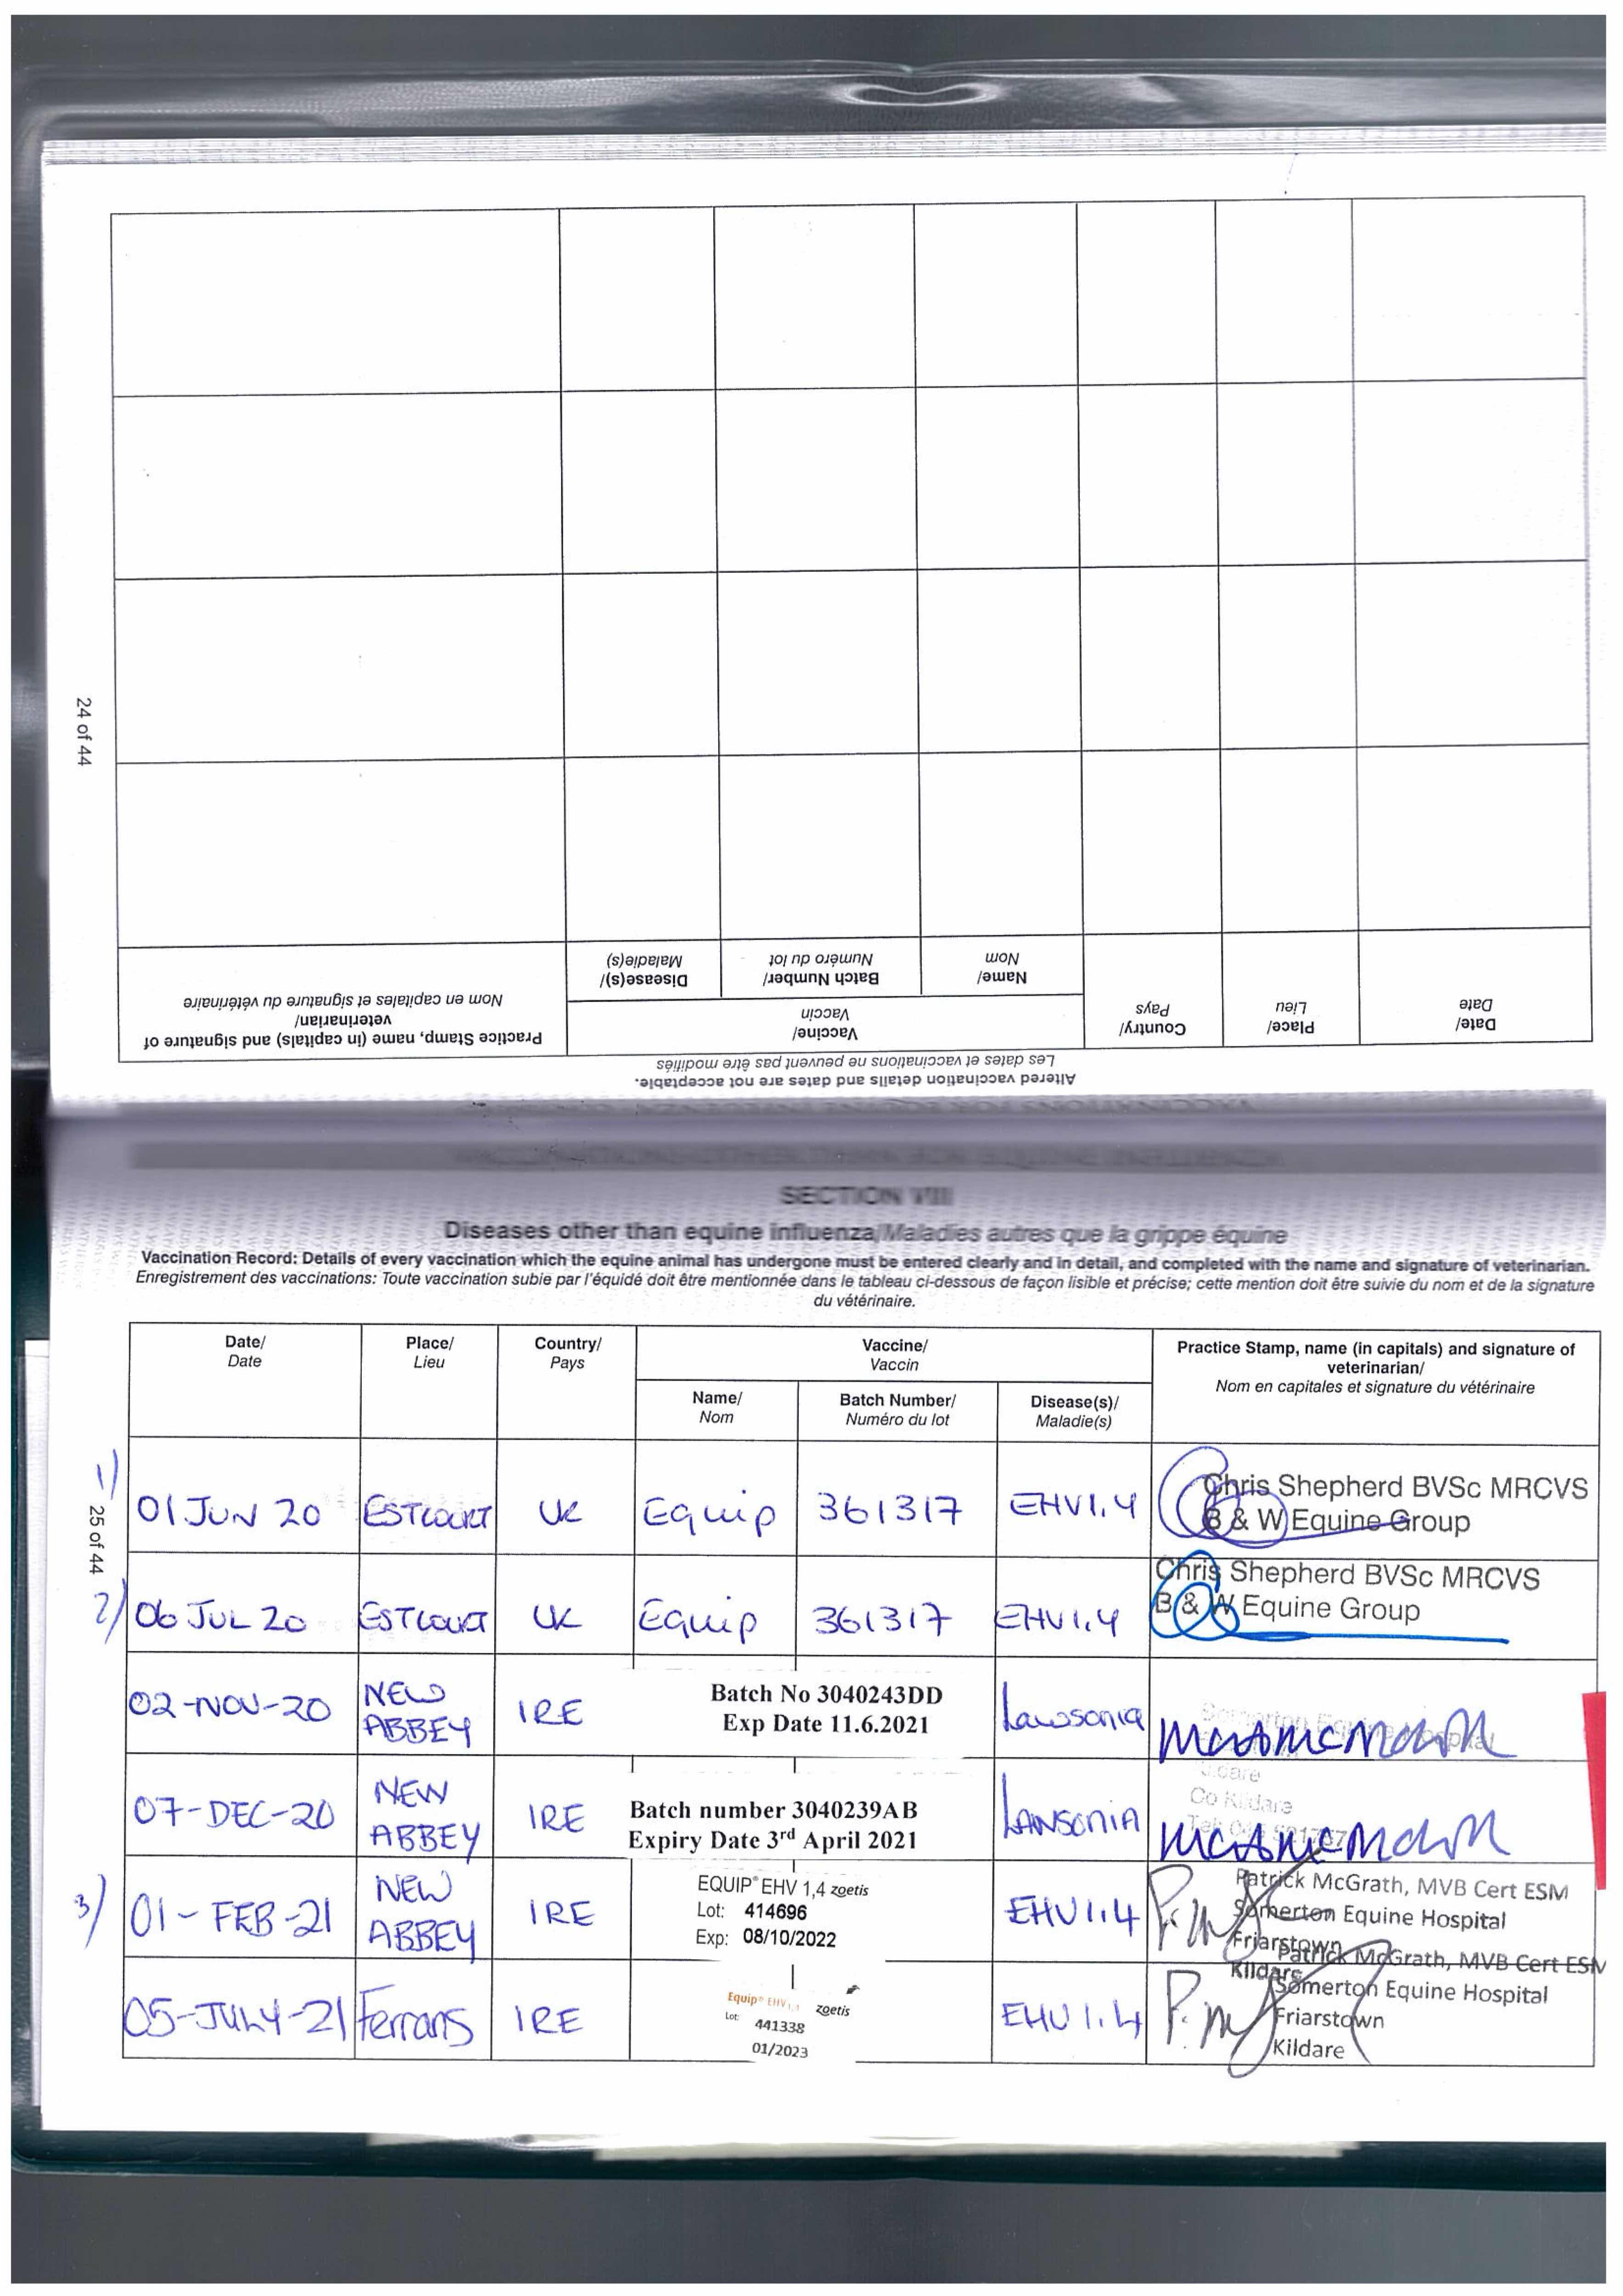 24 of 44
Altered vaccination details and dates are not acceptable.
Les dates et vaccinations ne peuvent pas être modifiées
Date/
Date
Place/
Lieu
Country/
Pays
Vaccine/
Vaccin
Name/
Nom
Batch Number/
Numéro du lot
Disease(s)/
Maladie(s)
Practice Stamp, name (in capitals) and signature of
veterinarian/
Nom en capitales et signature du vétérinaire
SECTION VIII
Diseases other than equine influenza/Maladies autres que la grippe équine
Vaccination Record: Details of every vaccination which the equine animal has undergone must be entered clearly and in detail, and completed with the name and signature of veterinarian.
Enregistrement des vaccinations: Toute vaccination subie par l'équidé doit être mentionnée dans le tableau ci-dessous de façon lisible et précise; cette mention doit être suivie du nom et de la signature
du vétérinaire.
Date/
Date
Place/
Lieu
Country/
Pays
Vaccine/
Vaccin
Name/
Nom
Batch Number/
Numéro du lot
Disease(s)/
Maladie(s)
Practice Stamp, name (in capitals) and signature of
veterinarian/
Nom en capitales et signature du vétérinaire
25 of 44
1)
01 JUN 20
ESTCOURT
UK
Equip
361317
EHV1,4
Chris Shepherd BVSc MRCVS
B & W Equine Group
2)
06 JUL 20
ESTCOURT
UK
Equip
361317
EHV1,4
Chris Shepherd BVSc MRCVS
B & W Equine Group
02-NOV-20
NEW
ABBEY
IRE
Batch No 3040243DD
Exp Date 11.6.2021
Lawsonia
Somerton Equine Hospital
07-DEC-20
NEW
ABBEY
IRE
Batch number 3040239AB
Expiry Date 3rd April 2021
LAWSONIA
Co Kildare
3)
01-FEB-21
NEW
ABBEY
IRE
EQUIP® EHV 1,4 zoetis
Lot: 414696
Exp: 08/10/2022
EHV1.4
Patrick McGrath, MVB Cert ESM
Somerton Equine Hospital
Friarstown
Kildare
05-JULY-21
Ferrans
IRE
Equip® EHV1,4 zoetis
Lot: 441338
01/2023
EHV 1.4
Patrick McGrath, MVB Cert ESM
Somerton Equine Hospital
Friarstown
Kildare